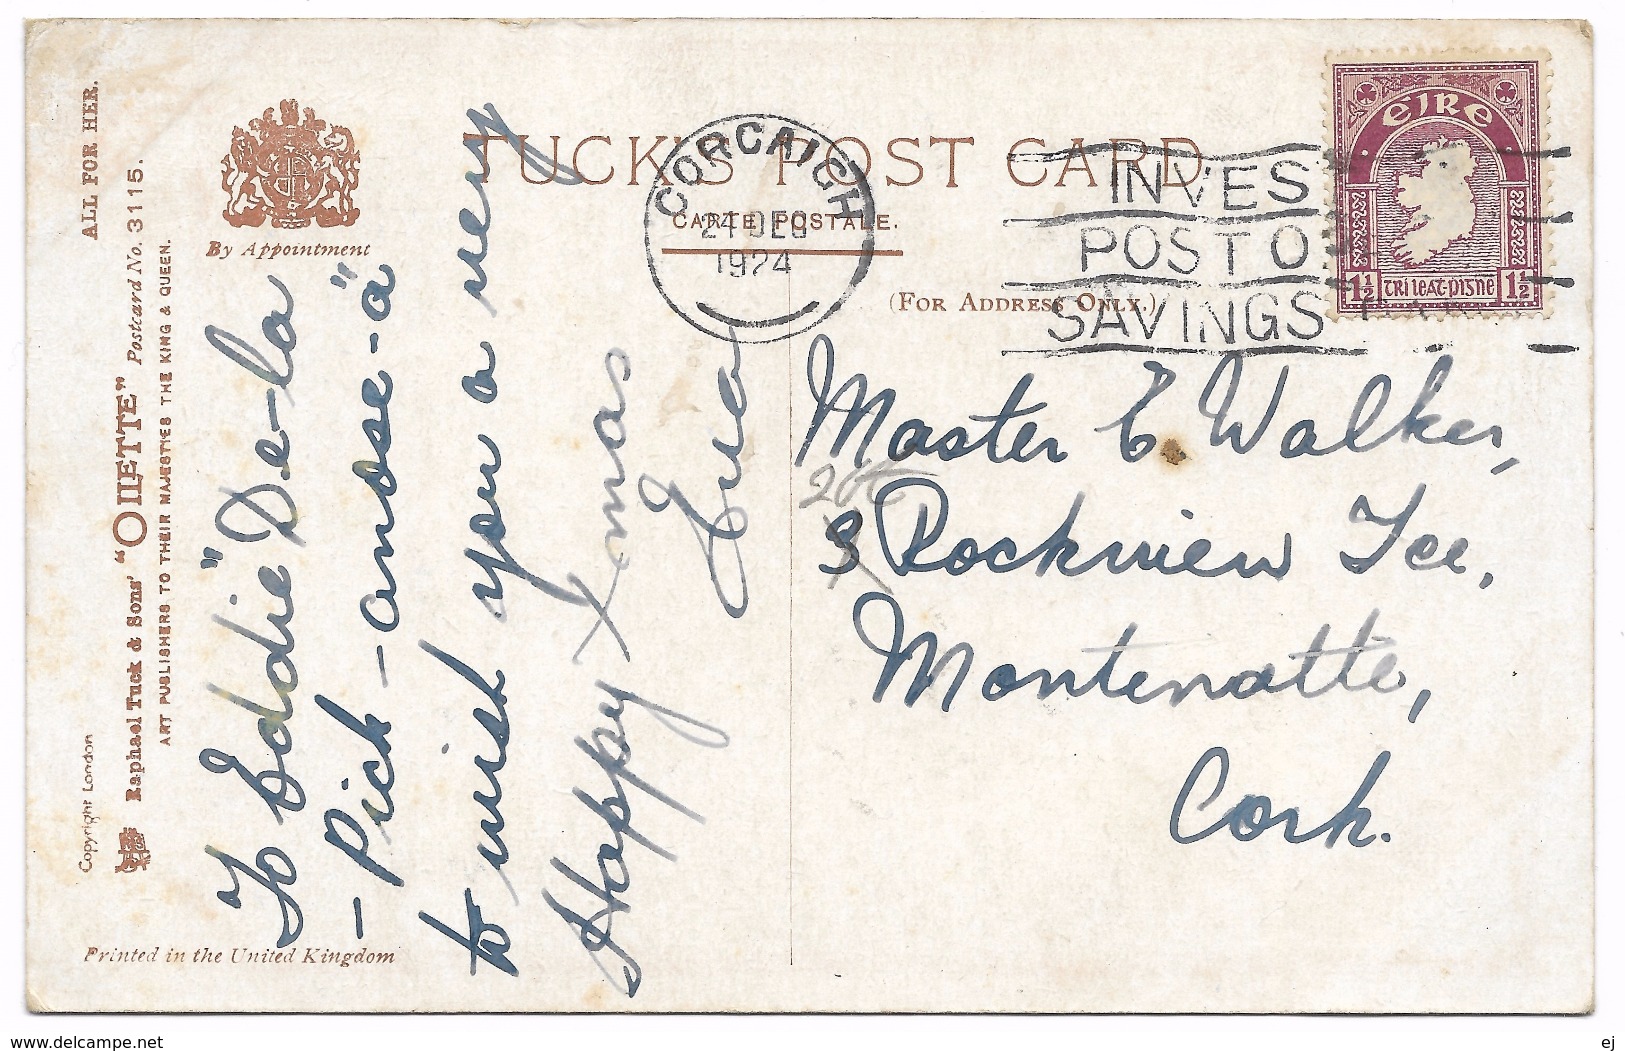 ALL FOR HER.
Raphael Tuck & Sons' "OILETTE" Postcard No. 3115.
ART PUBLISHERS TO THEIR MAJESTIES THE KING & QUEEN.
Copyright London
By Appointment
Printed in the United Kingdom
TUCK'S POST CARD
CARTE POSTALE.
(FOR ADDRESS ONLY.)
CORCAIGH
24 DEC
1924
INVES
POST O
SAVINGS
EIRE
1½ tri leat-pisne 1½
To "Eddie" De-la
-Pick-anose-a"
to wish you a very
Happy Xmas
Eva
Master E Walker,
3 Rockview Tce,
Montenotte,
Cork.
www.delcampe.net
ej